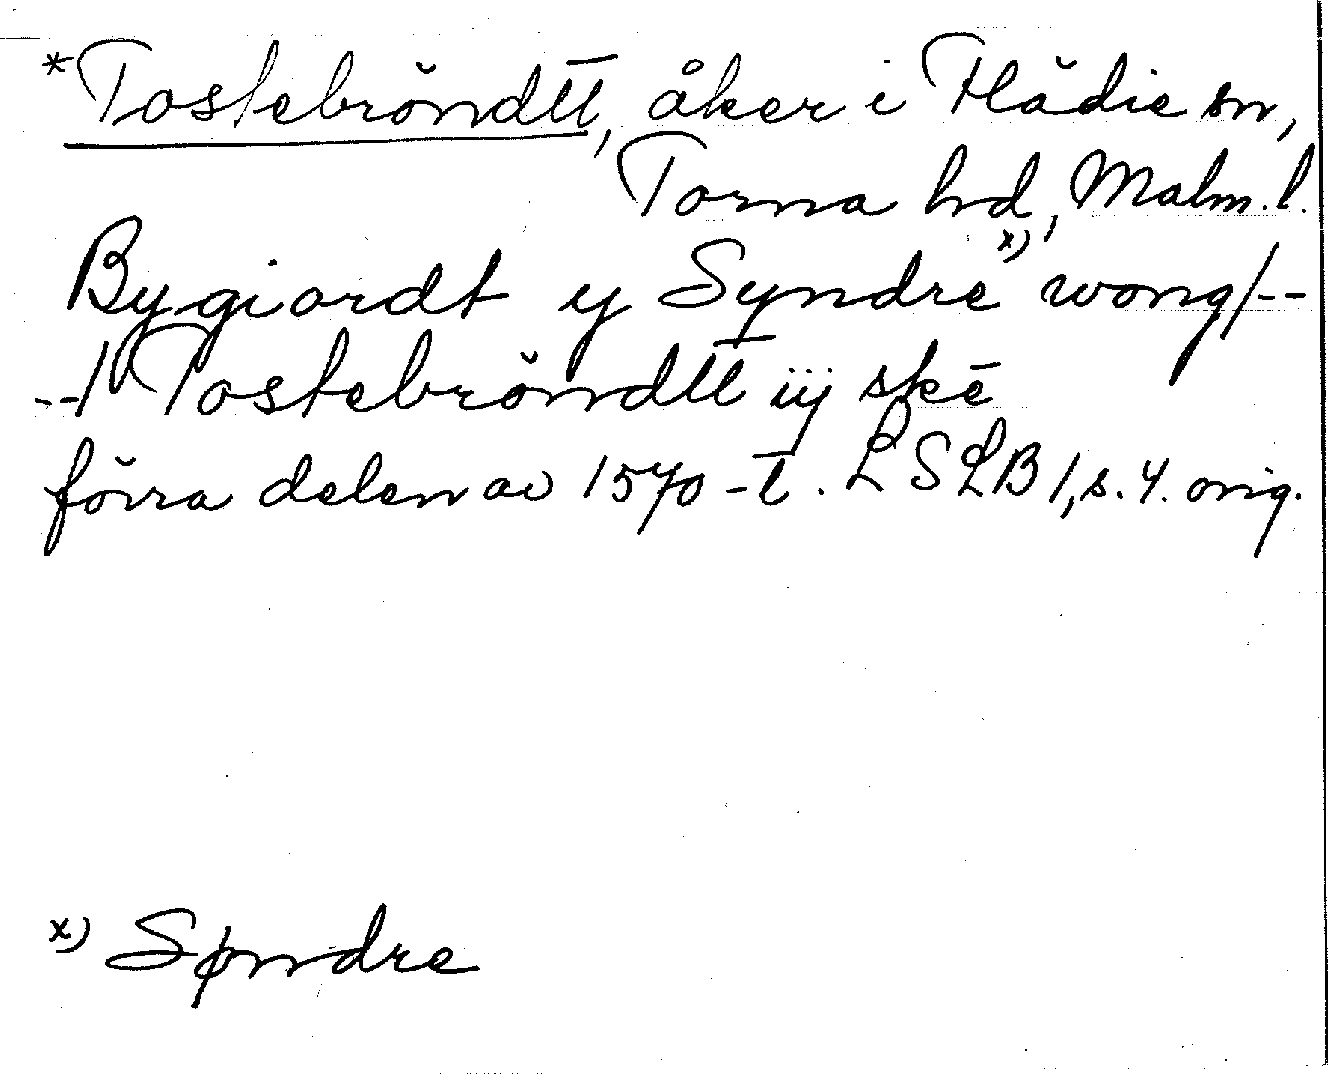 *Tostebröndtt, åker i Flädie sn,
Torna hd, Malm. l.
Bygiordt y Syndre x) wong/--
--/ Tostebröndtt iij ske
förra delen av 1570-t. LSLB 1, s. 4. orig.
x) Søndre